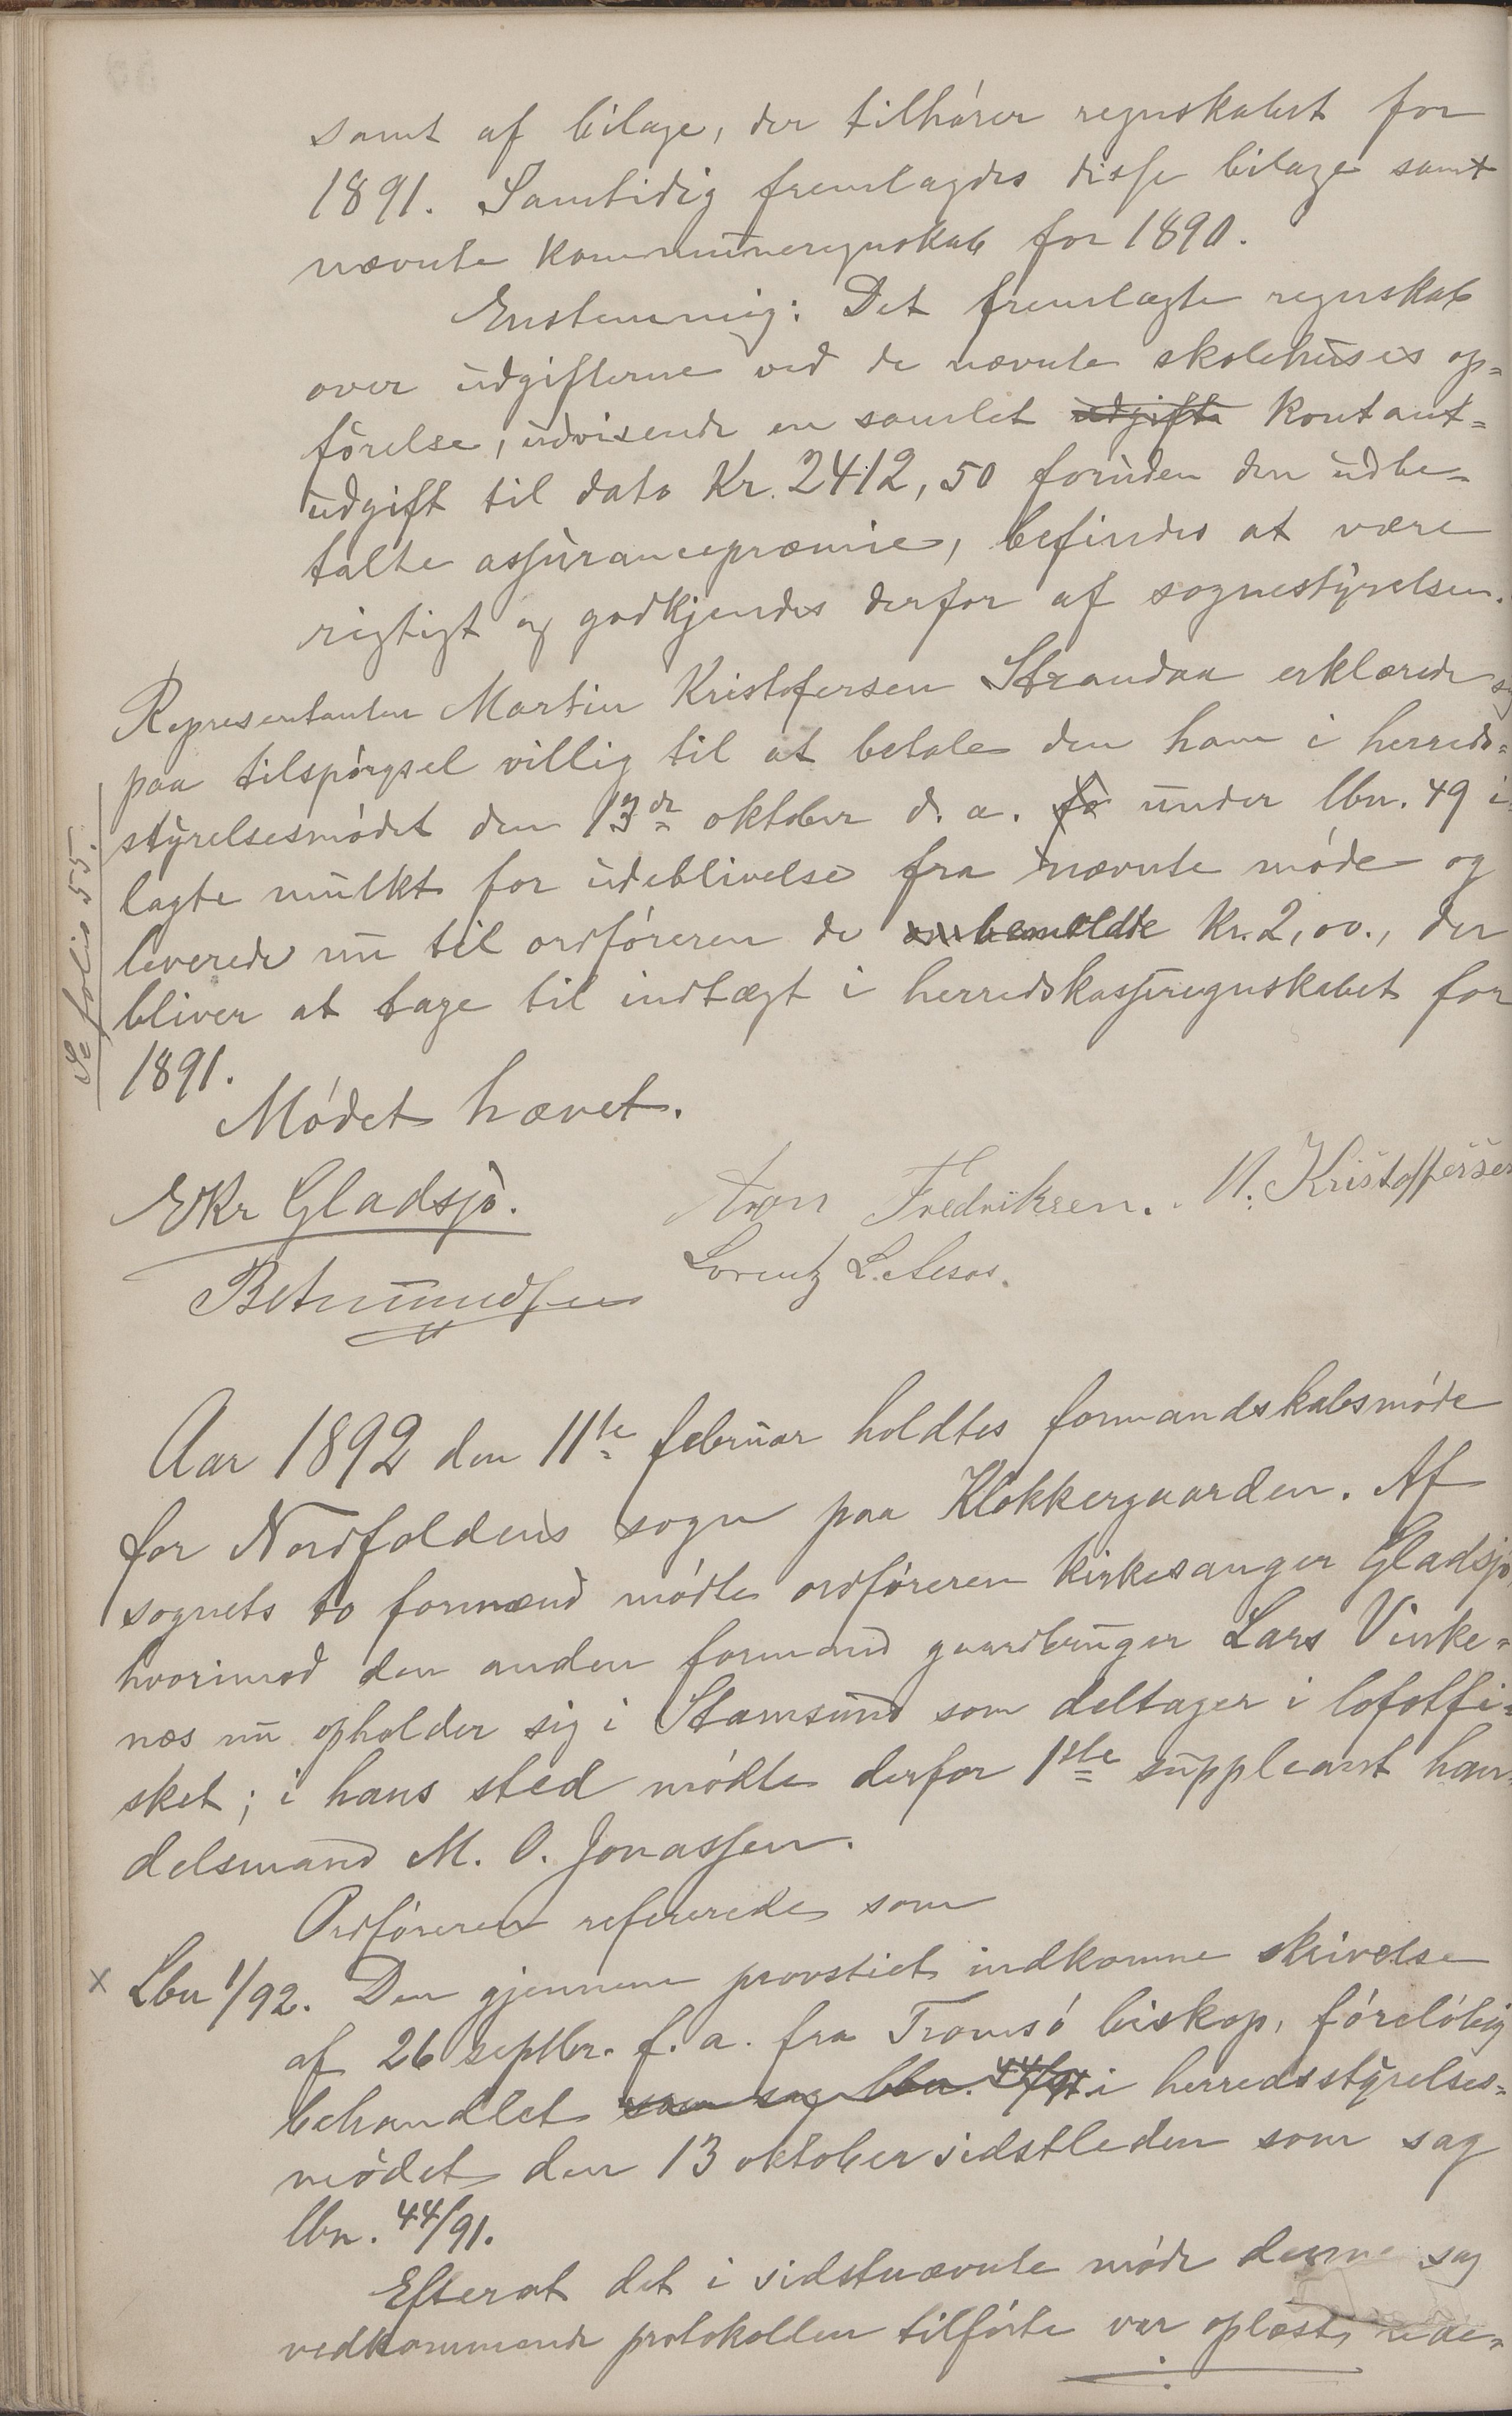 samt af bilage, der tilhører regnskabet for
1891. Samtidig fremlagdes disse bilage samt
nævnte kommuneregnskab for 1890.
Enstemmig: Det fremlagte regnskab
over udgifterne ved de nævnte skolehuses op-
førelse, udvisende en samlet udgift kontant-
udgift til dato Kr. 2412,50 foruden den udbe-
talte assurancepræmie, befindes at være
rigtigt og godkjendes derfor af sognestyrelsen.
Representanten Martin Kristofersen Strandaa erklærede sig
paa tilspørgsel villig til at betale den ham i herreds-
styrelsesmødet den 13de oktober d. a. under lbn. 49 i
lagte mulkt for udeblivelse fra nævnte møde og
leverede nu til ordføreren de ombemeldte Kr. 2,00., der
bliver at tage til indtægt i herredskasseregnskabet for
1891.
Se folio 55.
Mødet hævet.
EKr Gladsjø.
Aron Fredriksen. M. Kristoffersen
Lorentz L.
Aar 1892 den 11te februar holdtes formandskabsmøde
for Nordfoldens sogn paa Klokkergaarden. Af
sognets to formænd mødte ordføreren kirkesanger Gladsjø
hvorimod den anden formand gaardbruger Lars Vinke-
næs nu opholder sig i Stamsund som deltager i lofotfi-
sket; i hans sted mødte derfor 1ste suppleant han-
delsmand M. O. Jonassen.
Ordføreren refererede som
x Lbn 1/92. Den gjennem provstiet indkomne skrivelse
af 26 septbr. f. a. fra Tromsø biskop, foreløbig
behandlet som sag lbn. 44/91 i herredsstyrelses-
mødet den 13 oktober sidstleden som sag
lbn. 44/91.
Efterat det i sidstnævnte møde denne sag
vedkommende protokollen tilførte var oplæst,